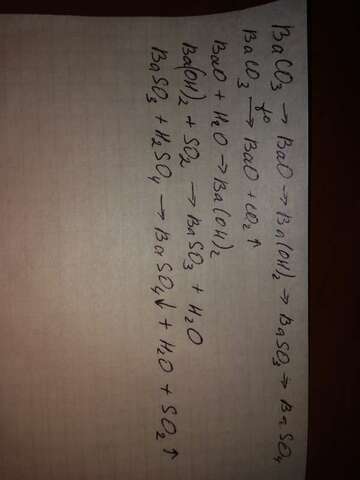 BaCO3 → BaO → Ba(OH)2 → BaSO3 → BaSO4
BaCO3 →t° BaO + CO2↑
BaO + H2O → Ba(OH)2
Ba(OH)2 + SO2 → BaSO3 + H2O
BaSO3 + H2SO4 → BaSO4↓ + H2O + SO2↑